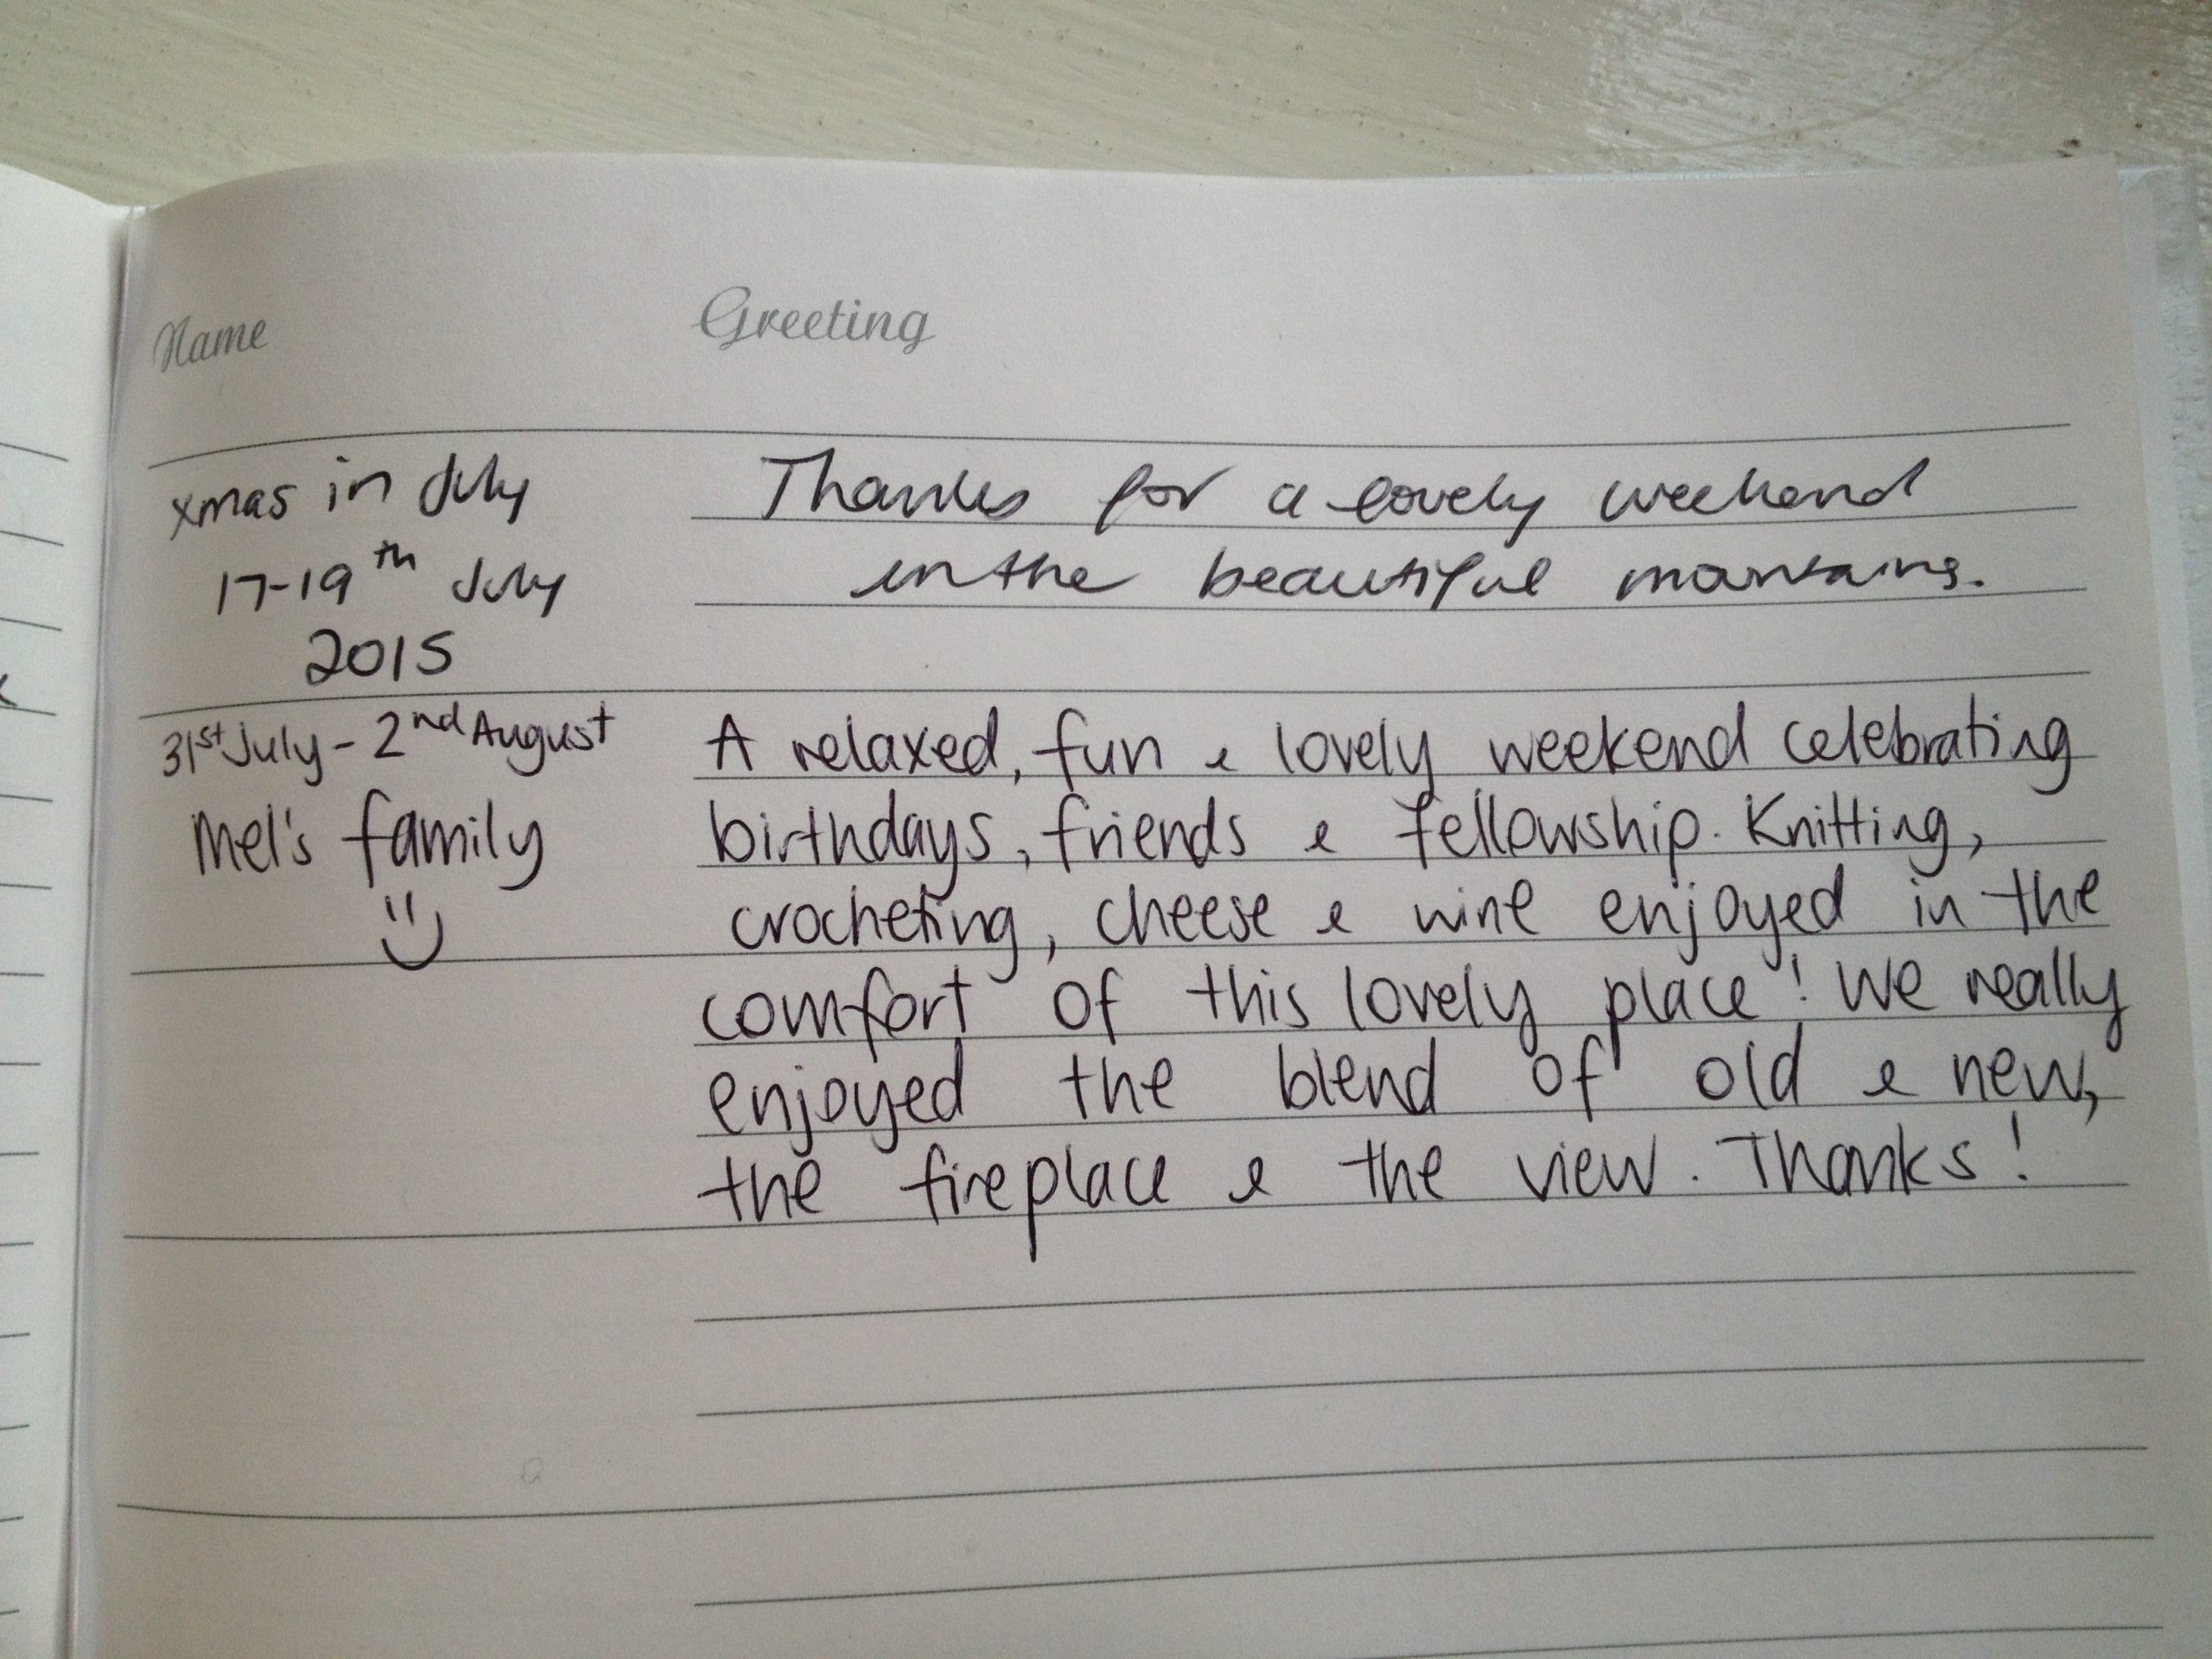 Name Greeting
xmas in July Thanks for a lovely weekend
17-19th July in the beautiful mountains.
2015
31st July - 2nd August A relaxed, fun & lovely weekend celebrating
Mel's family birthdays, friends & fellowship. Knitting,
:) crocheting, cheese & wine enjoyed in the
comfort of this lovely place! We really
enjoyed the blend of old & new,
the fireplace & the view. Thanks!